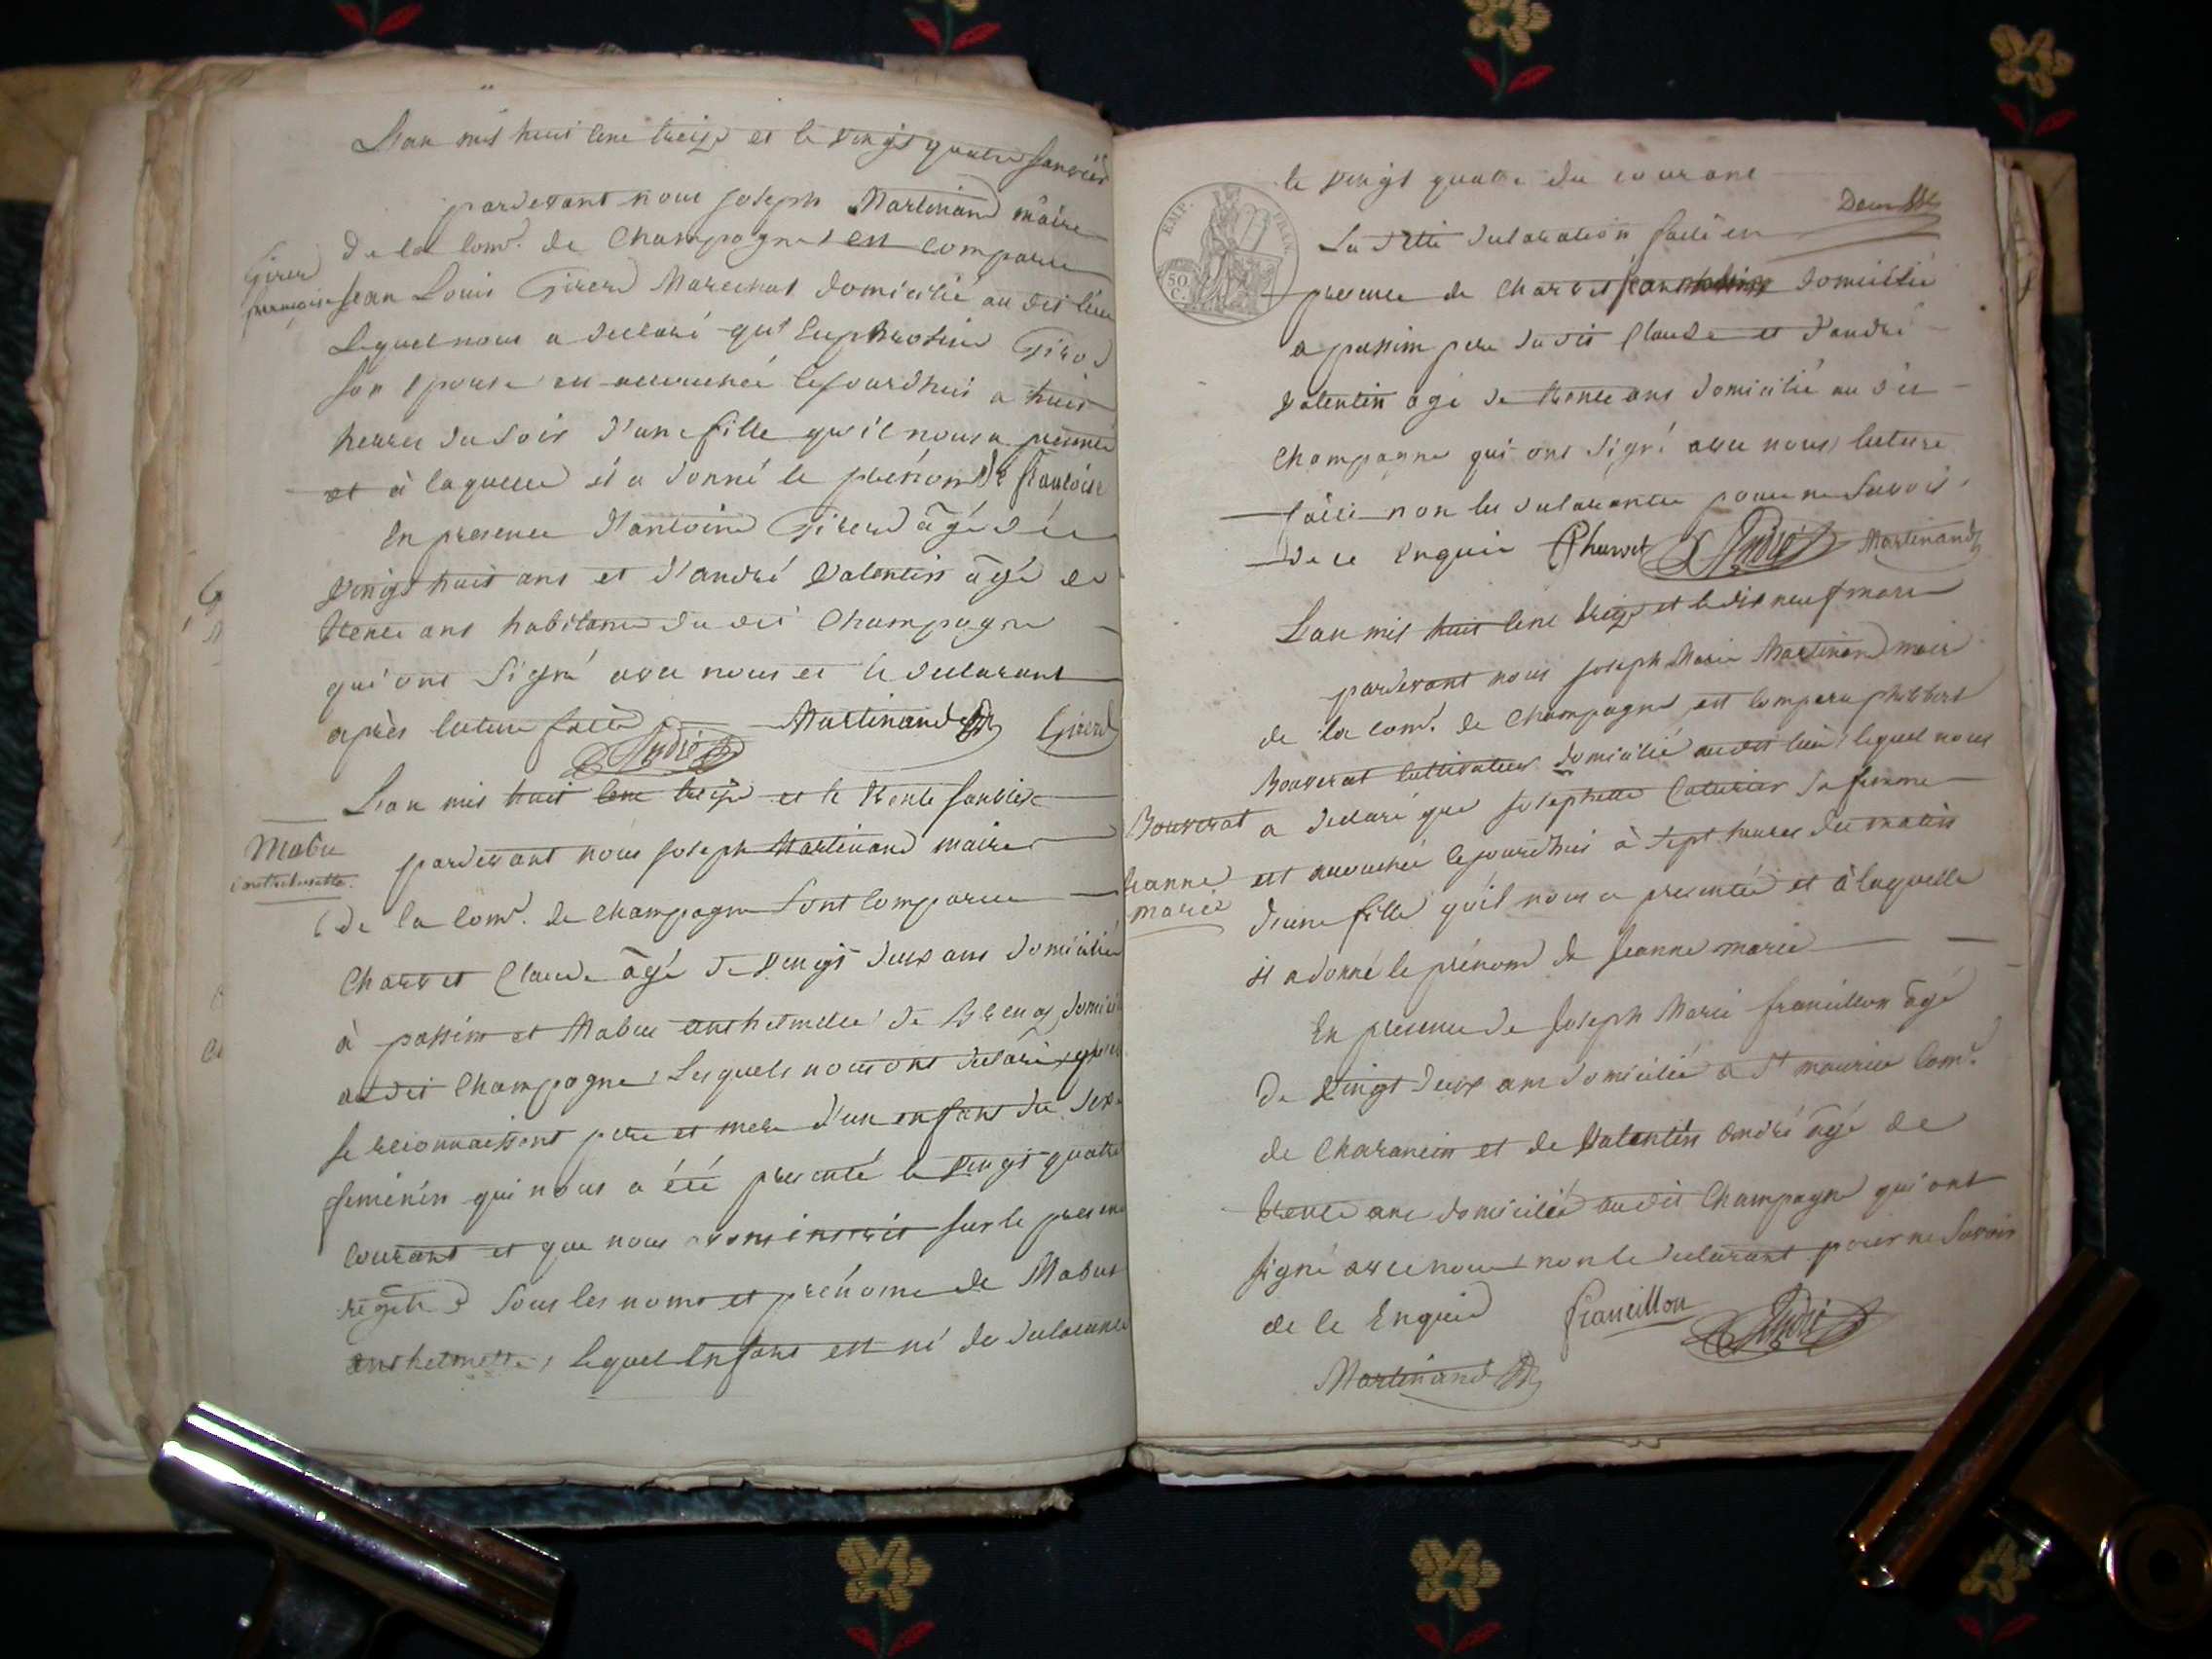 L'an mil huit cent treize et le vingt quatre janvier
pardevant nous joseph Martinand maire
de la com.e de Champagne est comparu
Girerd
françoise
jean Louis Girerd Marechal domicilié au dit lieu
Lequel nous a declaré qu'Euphrosine Girod
son epouse est accouchée cejourdhui a huit
heures du soir d'une fille qu'il nous a presenté
et à laquelle il a donné le prénom de françoise
En presence d'antoine Girerd âgé de
vingt huit ans et d'andré Valentin âgé de
trente ans habitans du dit Champagne
qui ont signé avec nous et le declarant
après lecture faite
André Martinand Girerd
L'an mil huit cent treize et le trente janvier
Mabue
anthelmette
pardevant nous joseph Martinand maire
de la com.e de Champagne sont comparus
Charvet Claude âgé de vingt deux ans domicilié
à passin et Mabue anthelmette de Brenas domicil
audit Champagne, Lesquels nous ont declaré qu'ils
se reconnaissent pere et mere d'un enfant du sexe
feminin qui nous a été presenté le vingt quatre
courant et que nous avons inscrit sur le present
régitre sous les noms et prénoms de Mabue
anthelmette, lequel enfant est né de declarante
le vingt quatre du courant
EMP. FRAN.
50 C.
Deux
La d.ette declaration faite en
presence de Charvet domicilié
a passin pere du dit Claude et d'andré
Valentin agé de trente ans domicilié au dit
Champagne qui ont signé avec nous, lecture
faite non les declarantes pour ne savoir
de ce Enquis Charvet André Martinand
L'an mil huit cent treize et le dix neuf mars
pardevant nous joseph Marie Martinand maire
de la com.e de Champagne est comparu philibert
Bouverat cultivateur domicilié audit lieu, lequel nous
Bouverat
Jeanne
marie
a declaré que josephette Caturier sa femme
est accouchée cejourdhui à sept heures du matin
d'une fille qu'il nous a presentée et à laquelle
il a donné le prénom de Jeanne marie
En presence de Joseph Marie francillon âgé
de vingt deux ans domicilié a S.t maurice com.e
de Charancin et de Valentin andré âgé de
trente ans domicilié audit Champagne qui ont
signé avec nous non le declarant pour ne Savoir
de ce Enquis francillon André
Martinand